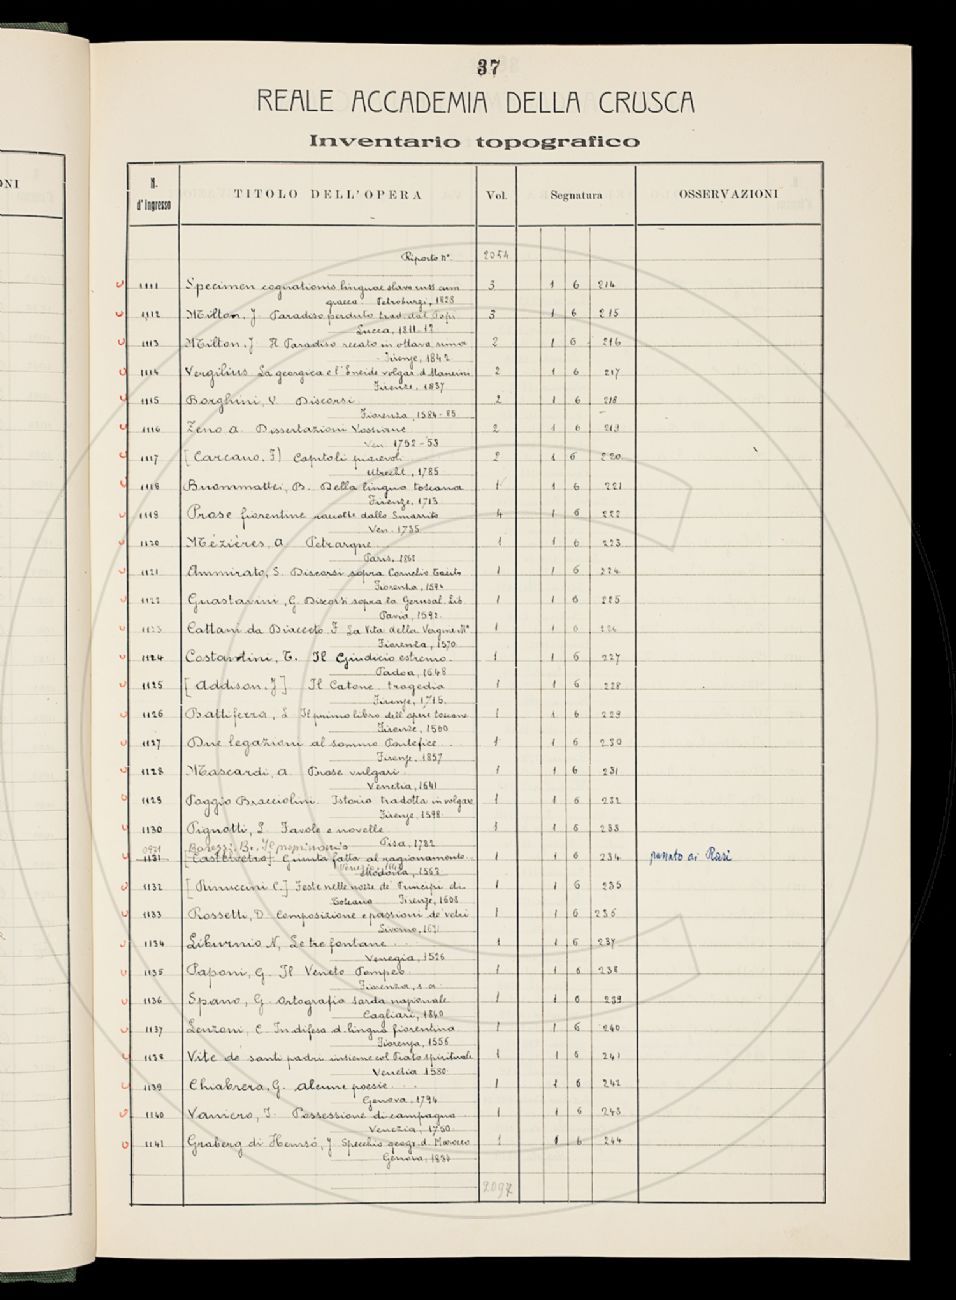 ONI
37
REALE ACCADEMIA DELLA CRUSCA
Inventario topografico
N. d'Ingresso TITOLO DELL'OPERA Vol. Segnatura OSSERVAZIONI
Riporto N° 2054
1111 Specimen cognationis linguae slavo russ. cum 3 1 6 214
graeca. Petroburgi, 1828
1112 Milton, J. Paradiso perduto trad. dal Papi 3 1 6 215
Lucca, 1811-12
1113 Milton, J. Il Paradiso recato in ottava rima 2 1 6 216
Firenze, 1842
1114 Vergilius La georgica e l'Eneide volgar. d. Mancini 2 1 6 217
Firenze, 1837
1115 Borghini, V. Discorsi 2 1 6 218
Fiorenza, 1584-85
1116 Zeno A. Dissertazioni Vossiane 2 1 6 219
Ven. 1752-53
1117 [Carcano, F] Capitoli piacevoli 2 1 6 220
Utrecht, 1785
1118 Buommattei, B. Della lingua toscana 1 1 6 221
Firenze, 1713
1119 Prose fiorentine raccolte dallo Smarrito 4 1 6 222
Ven. 1735
1120 Mézières, A. Petrarque 1 1 6 223
Paris, 1868
1121 Ammirato, S. Discorsi sopra Cornelio Tacito 1 1 6 224
Fiorenza, 1594
1122 Guastavini, G. Discorsi sopra la Gerusal. Lib. 1 1 6 225
Pavia, 1592
1123 Cattani da Diacceto. F La Vita della Vergine Mª 1 1 6 226
Fiorenza, 1570
1124 Costantini, T. Il Giudicio estremo. 1 1 6 227
Padoa, 1648
1125 [Addison, J] Il Catone. tragedia 1 1 6 228
Firenze, 1715
1126 Battiferra, L Il primo libro dell'opere toscane 1 1 6 229
Firenze, 1560
1127 Due legazioni al sommo Pontefice 1 1 6 230
Firenze, 1857
1128 Mascardi, A. Prose vulgari 1 1 6 231
Venetia, 1641
1129 Poggio Bracciolini. Istoria tradotta in volgare 1 1 6 232
Firenze, 1598
1130 Pignotti, L. Favole e novelle 1 1 6 233
Pisa, 1782
0921 Barezzi, B. Il
1131 [Castelvetro] Giunta fatta al ragionamento 1 1 6 234 passato ai Rari
Modona, 1563
1132 [Rinuccini C.] Feste nelle nozze de' Principi di 1 1 6 235
Toscana Firenze, 1608
1133 Rossetti, D. Composizione e passioni de' vetri 1 1 6 236
Livorno, 1671
1134 Liburnio N, Le tre fontane 1 1 6 237
Venegia, 1526
1135 Paponi, G. Il Veneto Pompeo 1 1 6 238
Fiorenza, s.a.
1136 Spano, G. Ortografia sarda nazionale 1 1 6 239
Cagliari, 1840
1137 Lenzoni, C. In difesa d. lingua fiorentina 1 1 6 240
Fiorenza, 1556
1138 Vite de' santi padri insieme col Prato spirituale 1 1 6 241
Venetia 1580
1139 Chiabrera, G. Alcune poesie 1 1 6 242
Genova, 1794
1140 Vaniero, J. Possessione di campagna 1 1 6 243
Venezia, 1750
1141 Graberg di Hemsö, J Specchio geogr. d. Marocco 1 1 6 244
Genova, 1834
2097